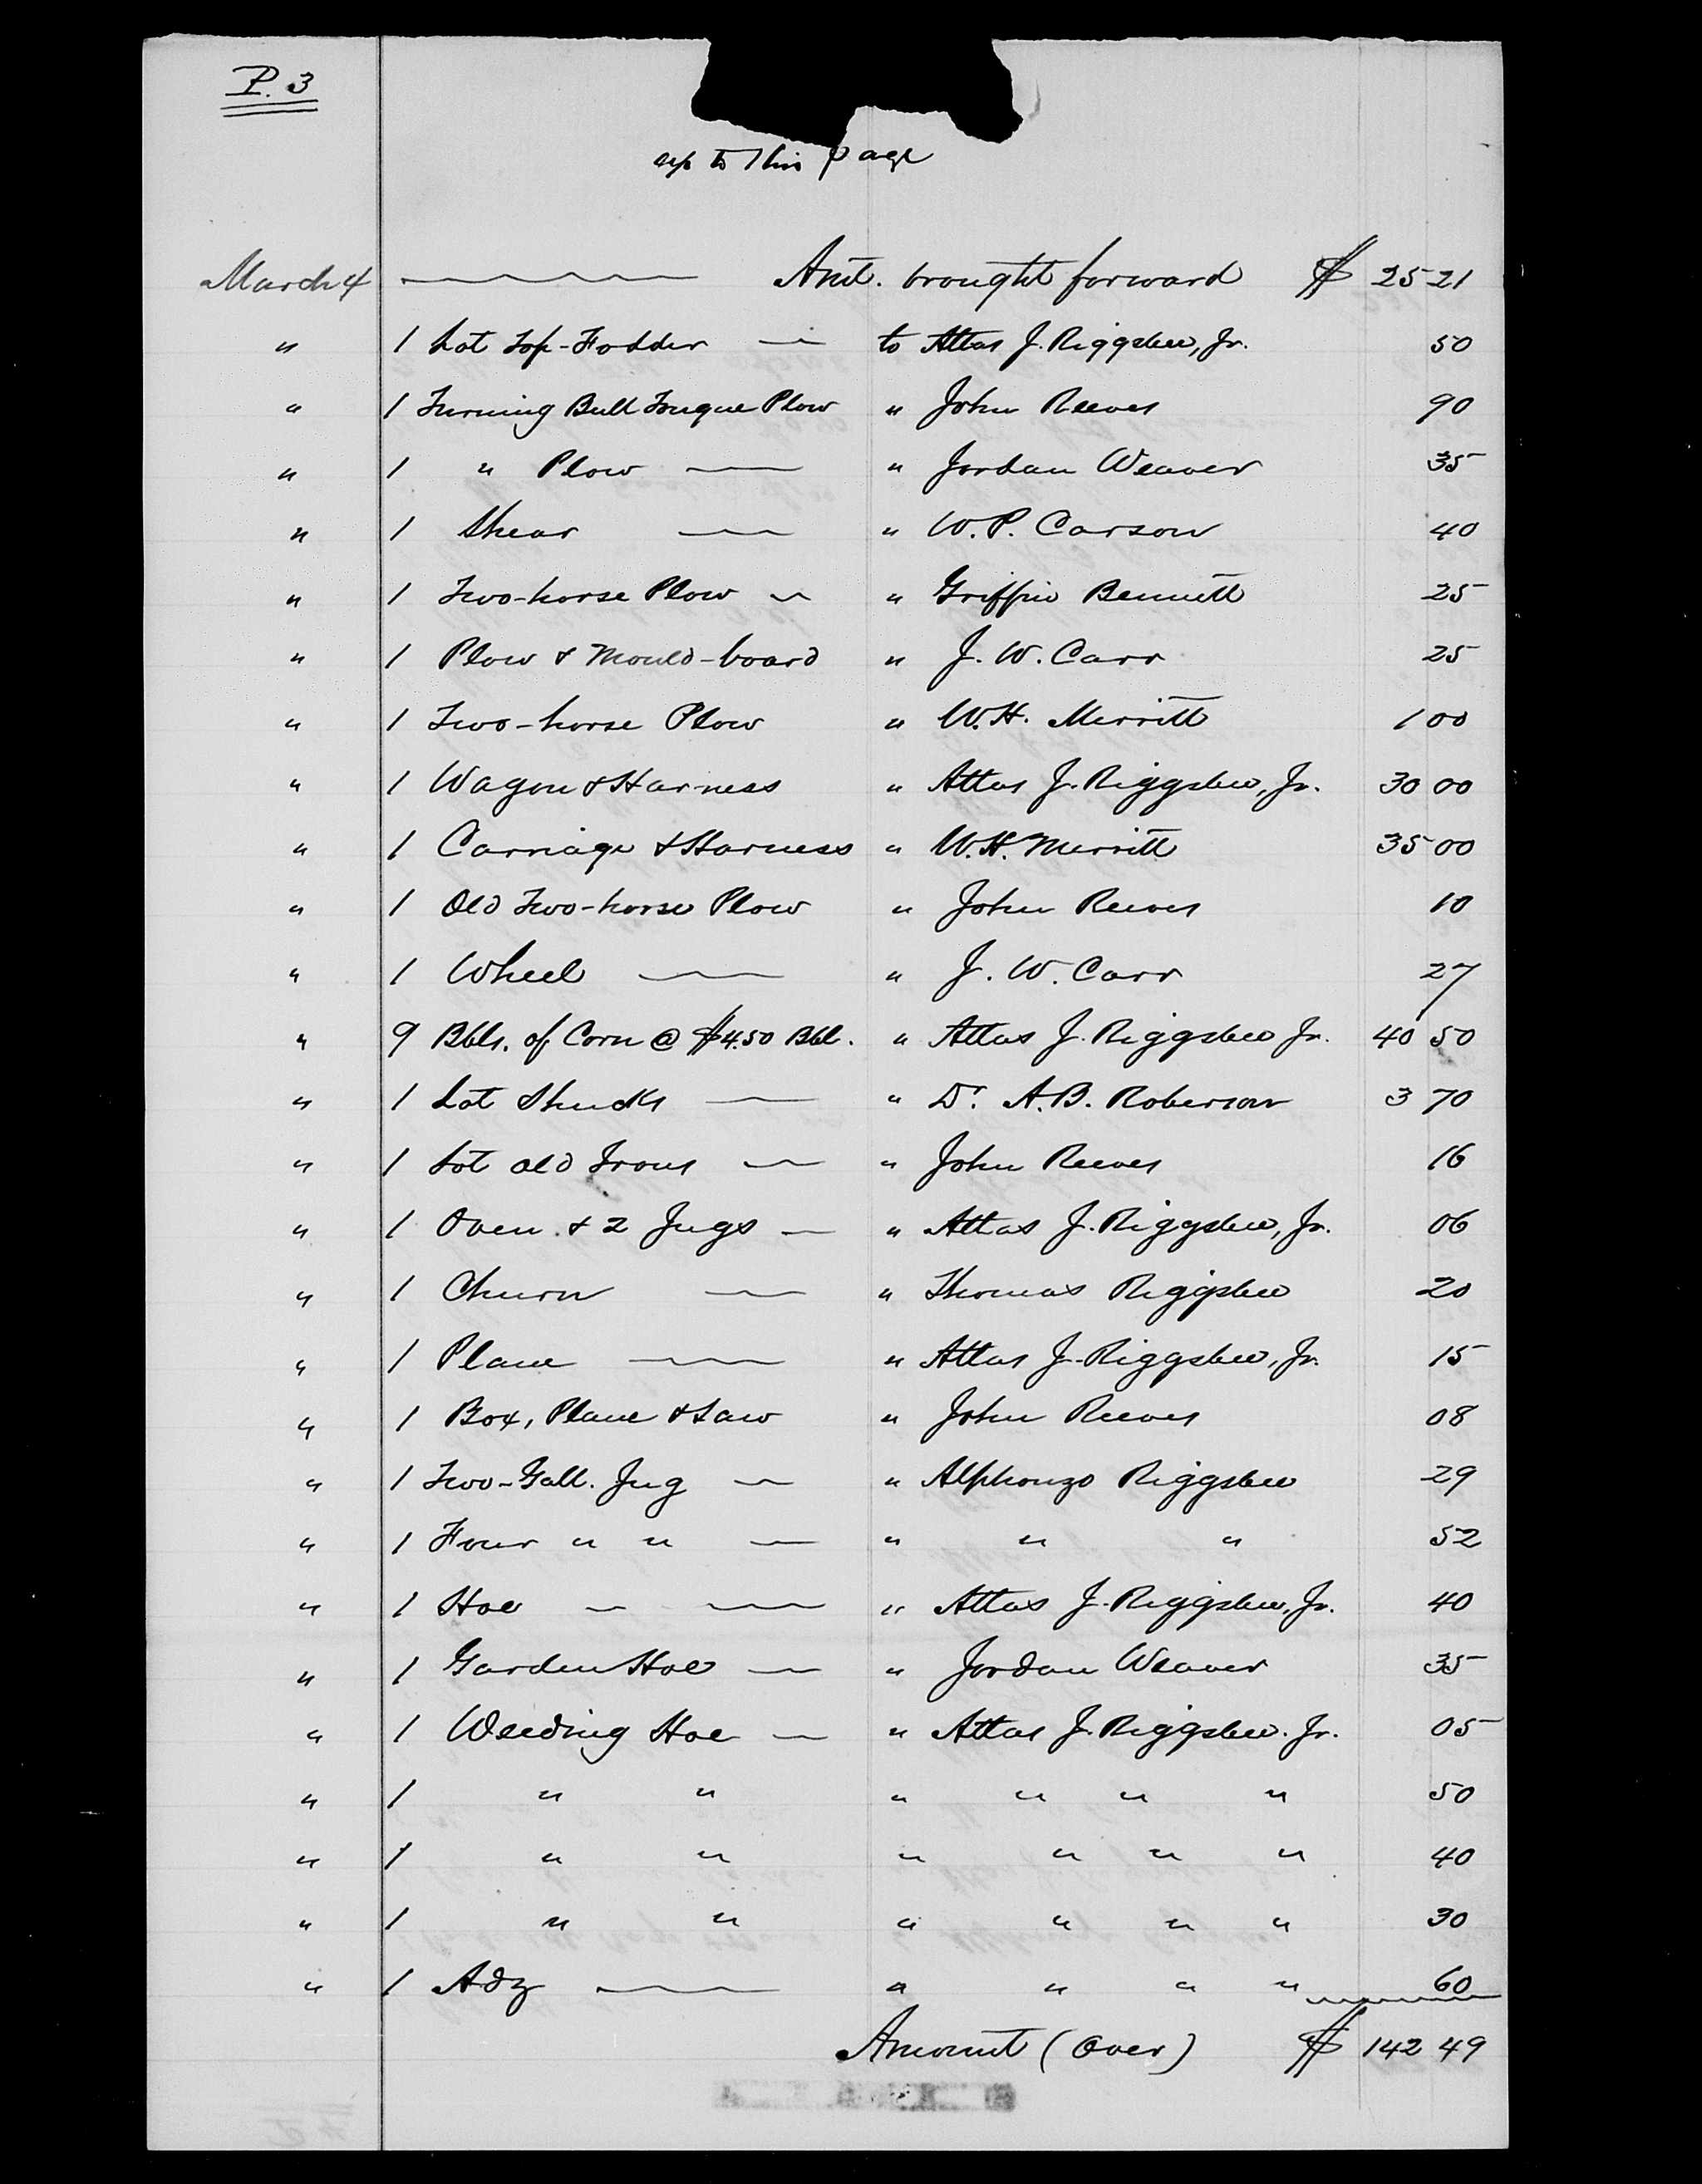 P. 3
up to this page
March 4 Amt. brought forward $ 25 21
" 1 Lot Top-Fodder — to Atlas J. Riggsbee, Jr. 50
" 1 Turning Bull Tongue Plow " John Reeves 90
" 1 " Plow — " Jordan Weaver 35
" 1 Shear — " W. P. Carson 40
" 1 Two-horse Plow — " Griffin Bennett 25
" 1 Plow & Mould-board " J. W. Carr 25
" 1 Two-horse Plow " W. H. Merritt 1 00
" 1 Wagon & Harness " Atlas J. Riggsbee, Jr. 30 00
" 1 Carriage & Harness " W. H. Merritt 35 00
" 1 Old Two-horse Plow " John Reeves 10
" 1 Wheel — " J. W. Carr 27
" 9 Bbls. of Corn @ $4.50 Bbl. " Atlas J. Riggsbee Jr. 40 50
" 1 Lot Shucks — " Dr. A. B. Roberson 3 70
" 1 Lot Old Irons — " John Reeves 16
" 1 Oven & 2 Jugs — " Atlas J. Riggsbee, Jr. 06
" 1 Churn — " Thomas Riggsbee 20
" 1 Plane — " Atlas J. Riggsbee, Jr. 15
" 1 Box, Plane & Saw " John Reeves 08
" 1 Two-Gall. Jug — " Alphonzo Riggsbee 29
" 1 Four " " — " " " 52
" 1 Hoe — — " Atlas J. Riggsbee, Jr. 40
" 1 Garden Hoe — " Jordan Weaver 35
" 1 Weeding Hoe — " Atlas J. Riggsbee. Jr. 05
" 1 " " " " " " 50
" 1 " " " " " " 40
" 1 " " " " " " 30
" 1 Adz — " " " " 60
Amount (Over) $ 142 49